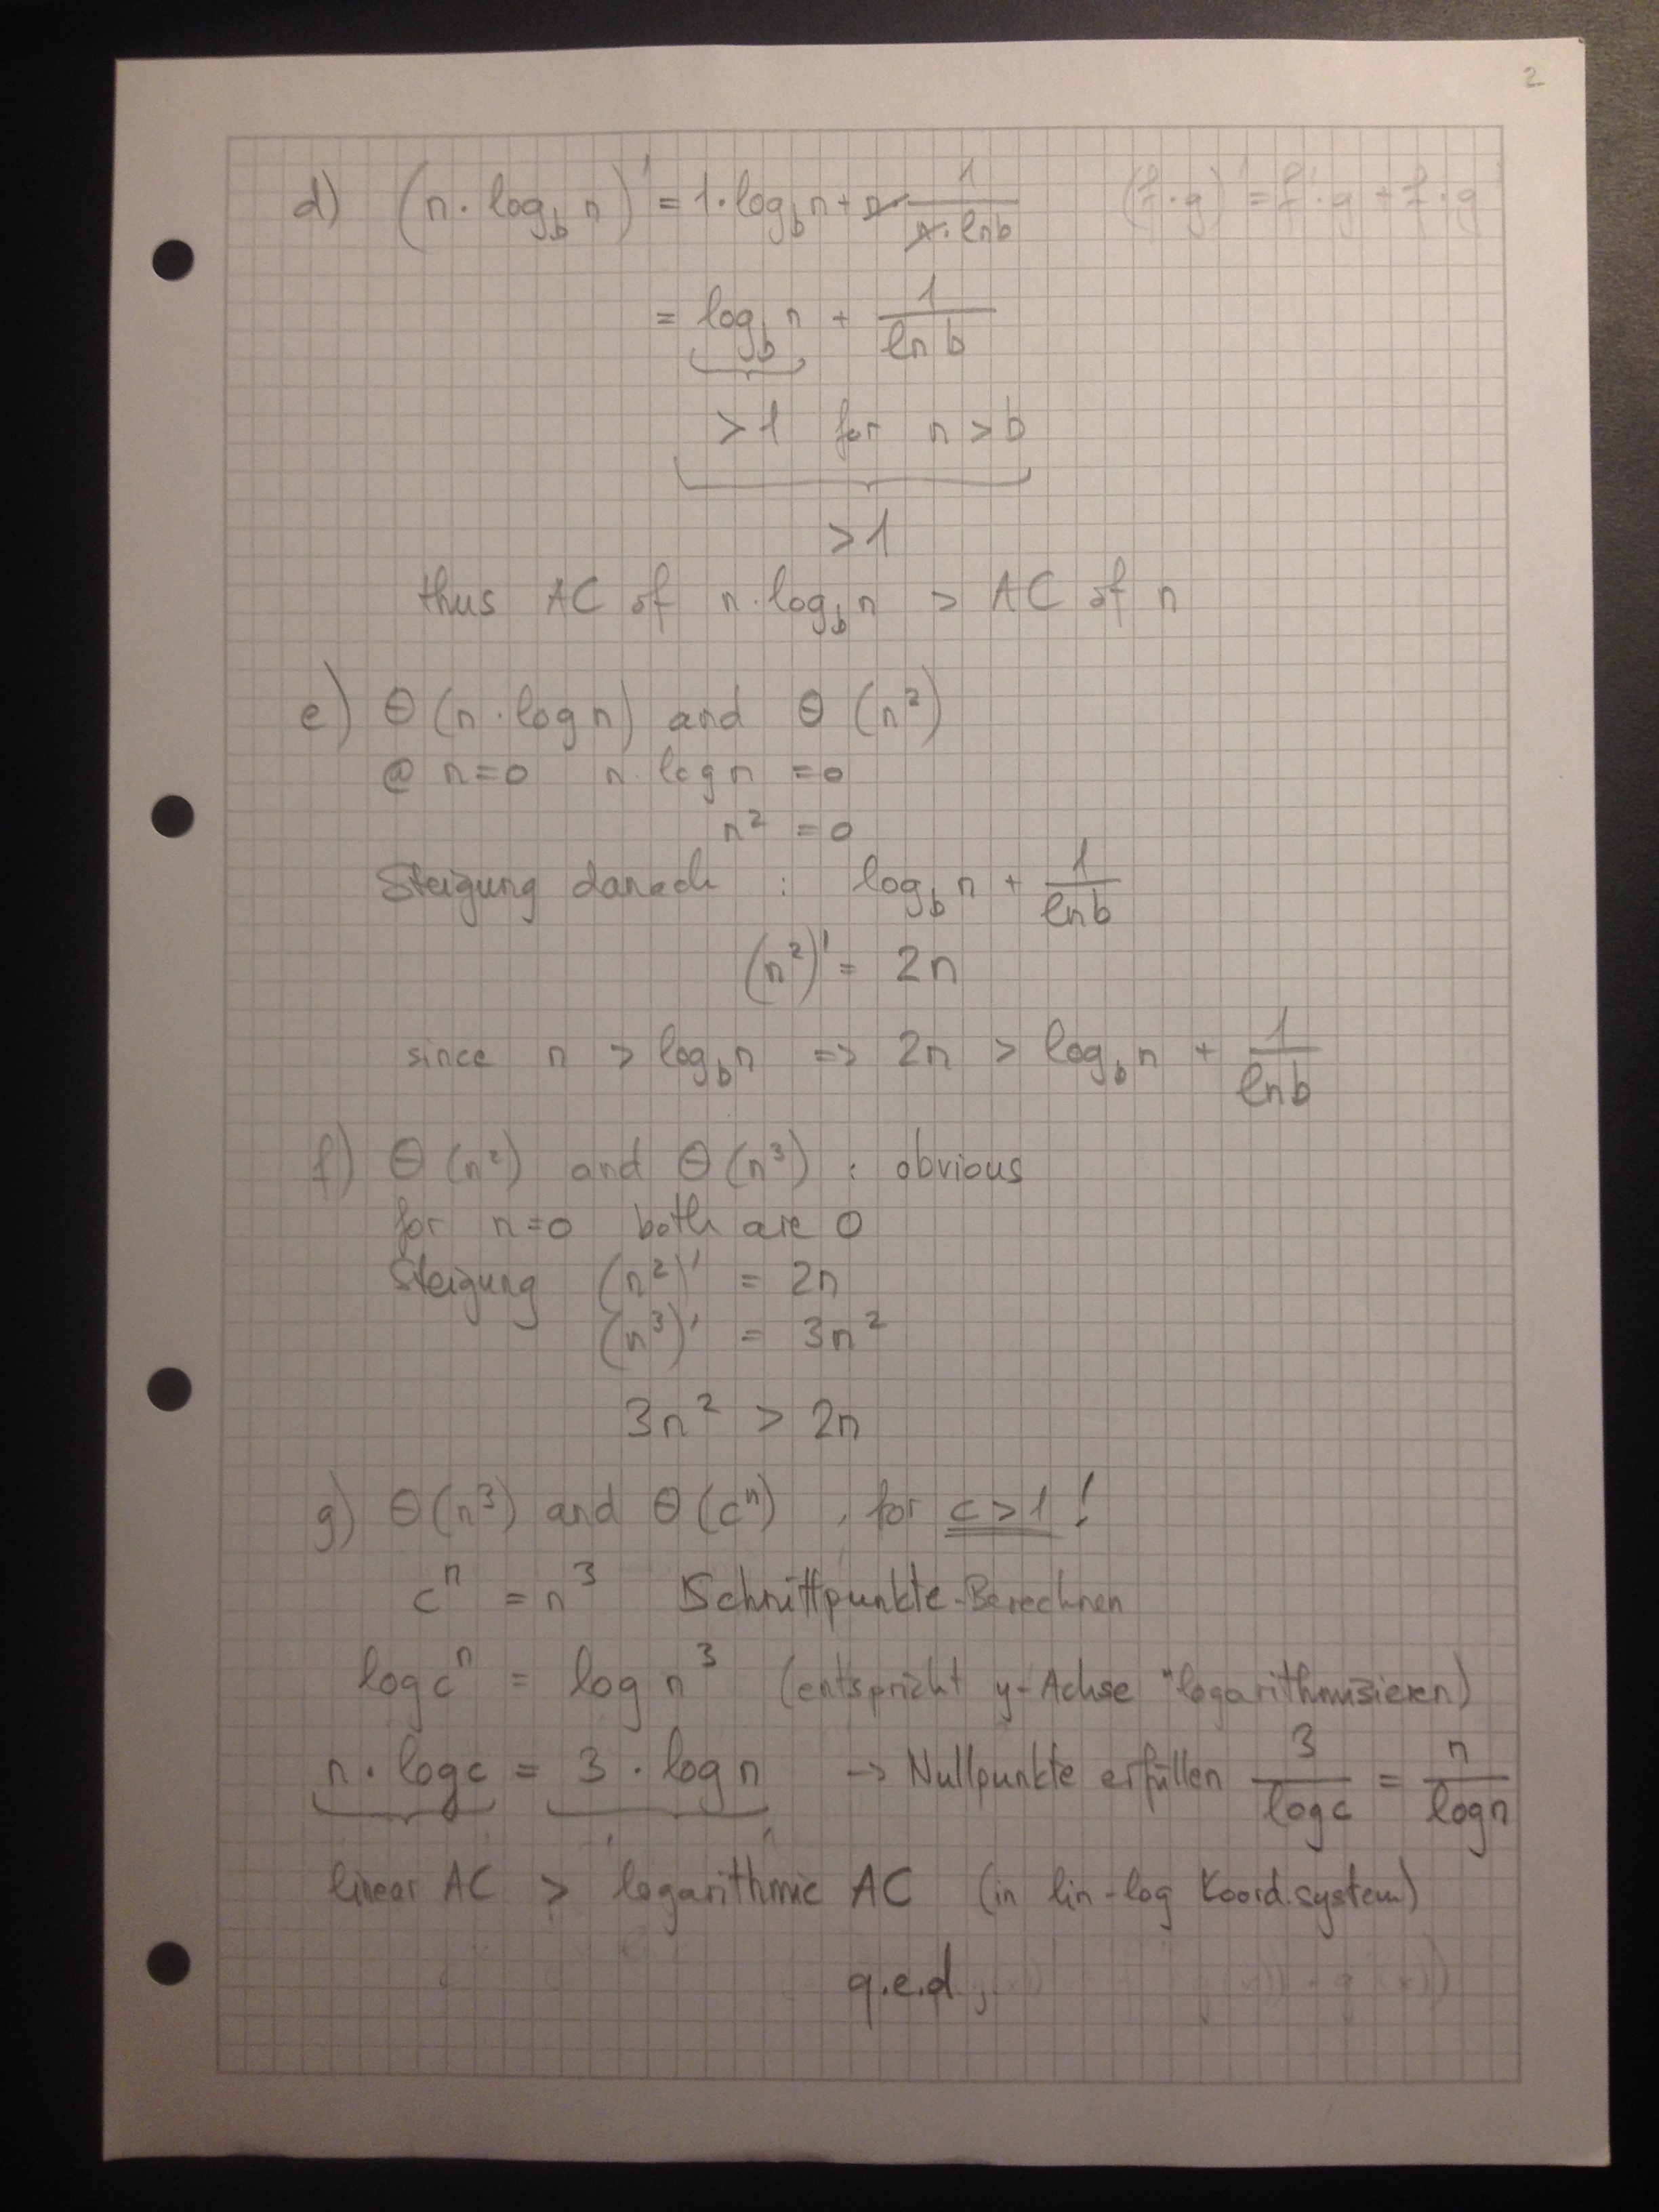 2
d) (n · log_b n)' = 1 · log_b n + n · 1/(n · ln b) (f · g)' = f' · g + f · g'
= log_b n + 1/(ln b)
> 1 for n > b
> 1
thus AC of n · log_b n > AC of n
e) Θ (n · log n) and Θ (n²)
@ n = 0 n · log n = 0
n² = 0
Steigung danach : log_b n + 1/(ln b)
(n²)' = 2n
since n > log_b n => 2n > log_b n + 1/(ln b)
f) Θ (n²) and Θ (n³) : obvious
for n = 0 both are 0
Steigung (n²)' = 2n
(n³)' = 3n²
3n² > 2n
g) Θ (n³) and Θ (cⁿ) , for c > 1 !
cⁿ = n³ Schnittpunkte-Berechnen
log cⁿ = log n³ (entspricht y-Achse "logarithmisieren)
n · log c = 3 · log n -> Nullpunkte erfüllen 3/(log c) = n/(log n)
linear AC > logarithmic AC (in lin-log Koord.system)
q.e.d